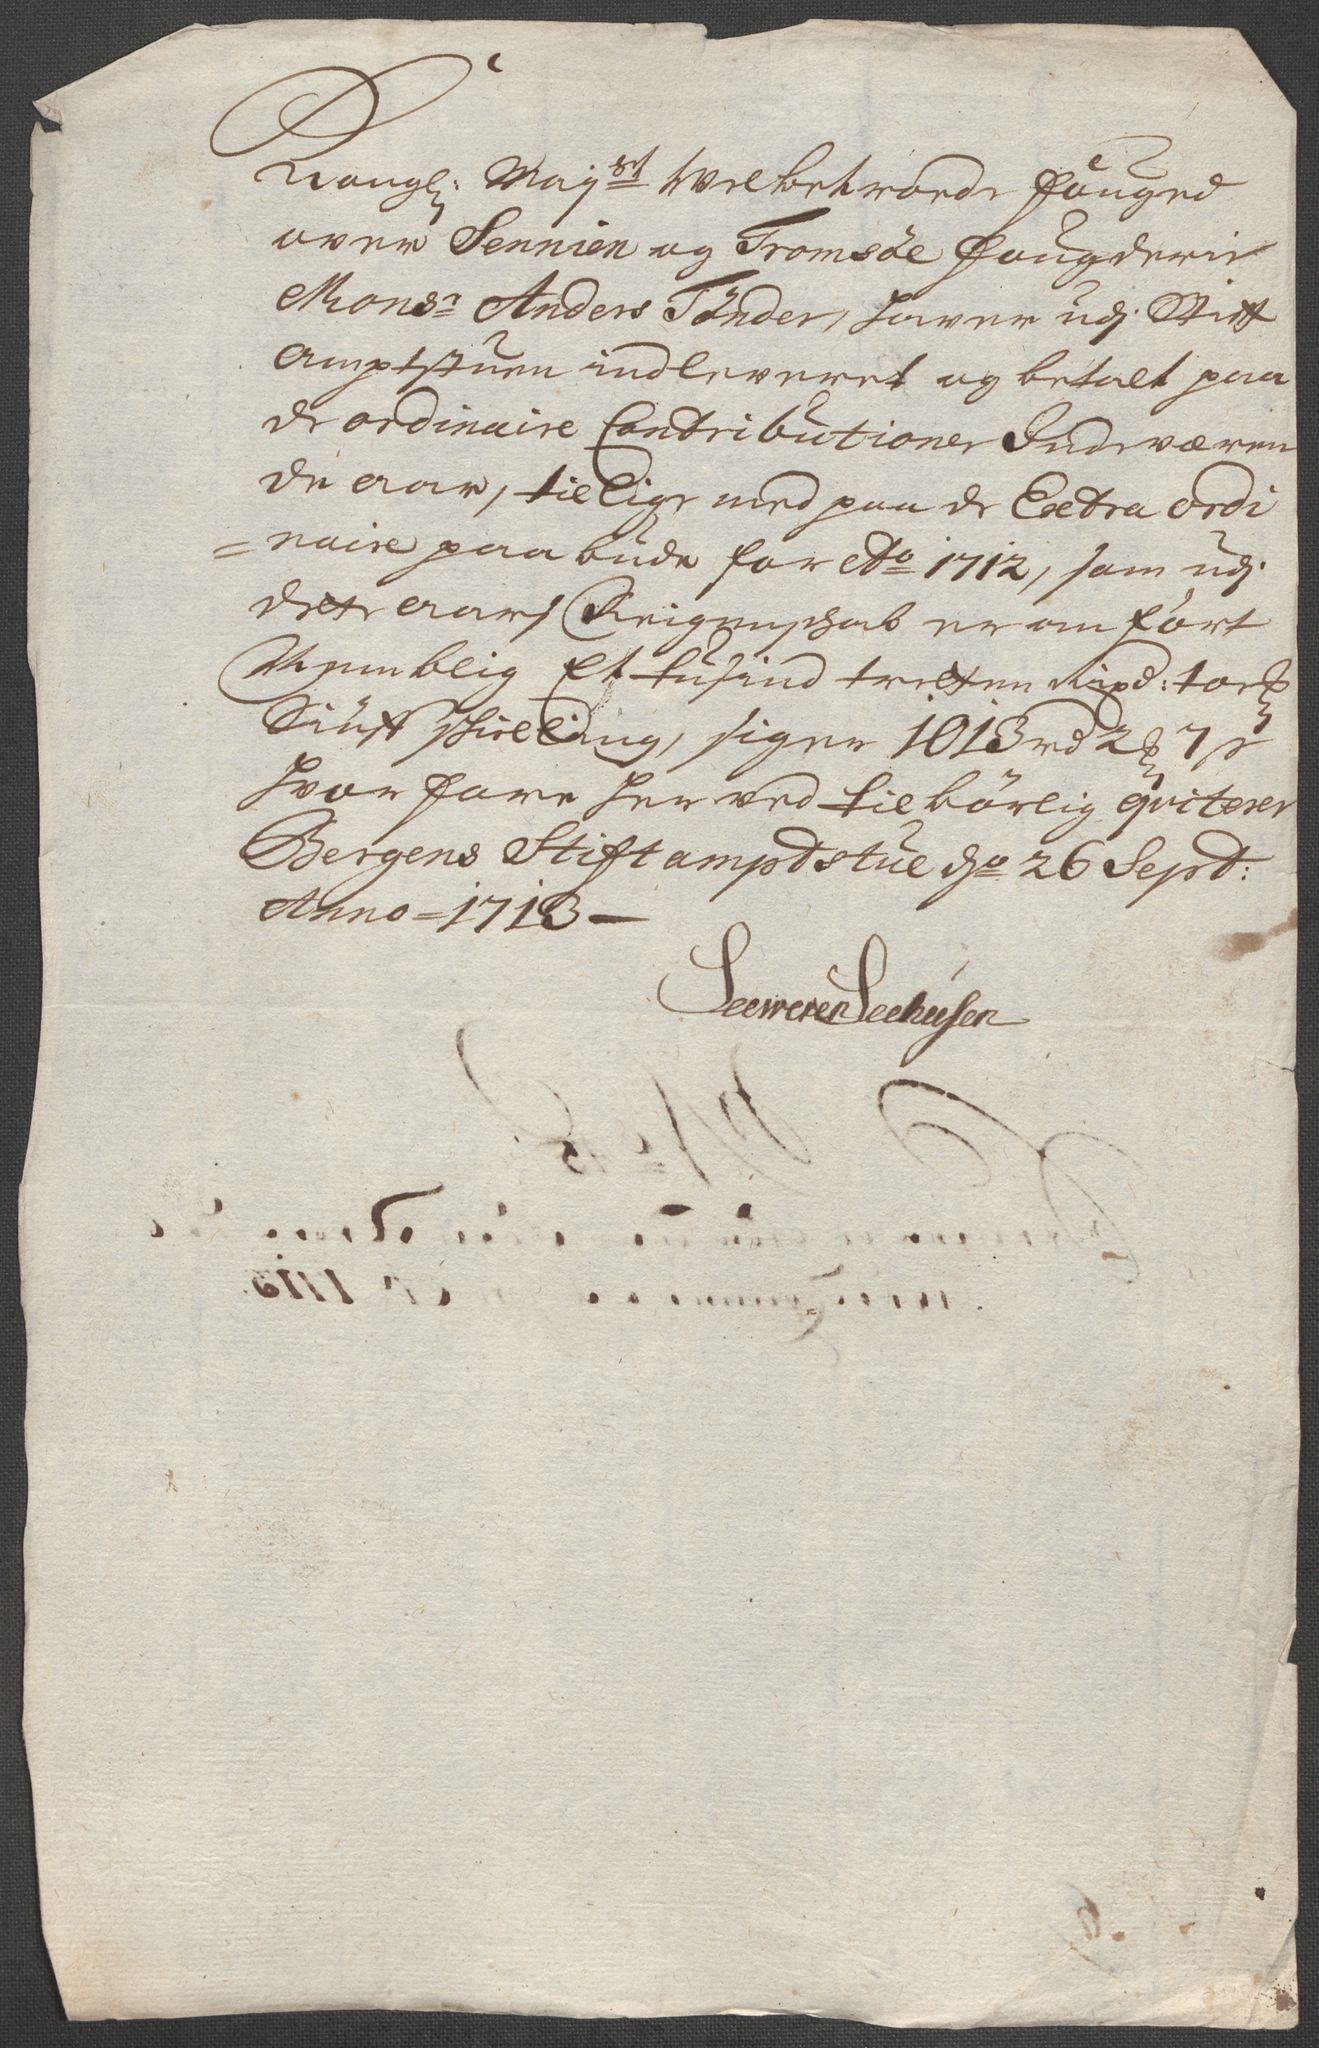 Kongl: May:st Welbetroede Fouged
over Sennien og Tromsöe Fougderie
Mons:r Anders Tönder, haver udj Stift
amptstuen indleveret og betalt paa
de ordinaire Contributioner Indeværen
de aar, tillige med paa de Extra ordi
=naire paabude for Ao 1712, som udj
dette aars Reigenschab er anfört
Nemblig Et tusind tretten Rixd: toe
Siuff skilling, siger 1013 rd 2 7 s
hvorfore herved tilbörlig qviterer
Bergens Stiftamptstue d: 26 Sept:
Anno = 1713 —
Seeweren Seehusen